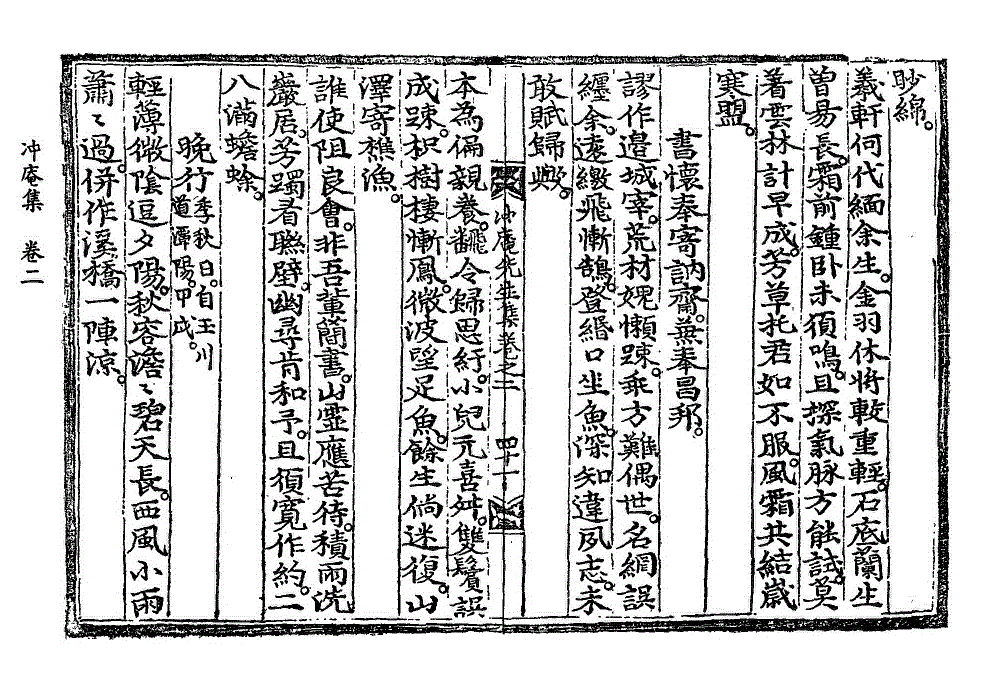 眇綿。
羲軒何代緬余生。金羽休將較重輕。石底蘭生
曽易長。霜前鍾卧未須鳴。且探氣脉方能試。莫
著雲林計早成。芳草托君如不服。風霜共結歲
寒盟。
書懷奉寄訥齋。兼奉昌邦。
謬作邉城宰。荒材媿懶踈。乘方難偶世。名網誤
纏余。遠繳飛慚鵠。登緡口坐魚。深知違夙志。未
敢賦歸歟。
冲庵先生集卷之二
四十一
本為偏親養。飜令歸思紆。小兒元喜舛。雙鬢誤
成踈。枳樹棲慚鳳。微波望足魚。餘生倘迷復。山
澤寄樵漁。
誰使阻良會。非吾輩簡書。山靈應苦待。積雨洗
巖居。芳躅看聮壁。幽尋肯和予。且須寛作約。二
八滿蟾蜍。
晩行 季秋日。自玉川道潭陽。甲戌。
輕薄微陰逗夕陽。秋容澹〻碧天長。西風小雨
蕭〻過。併作溪橋一陣凉。
冲庵集 卷二